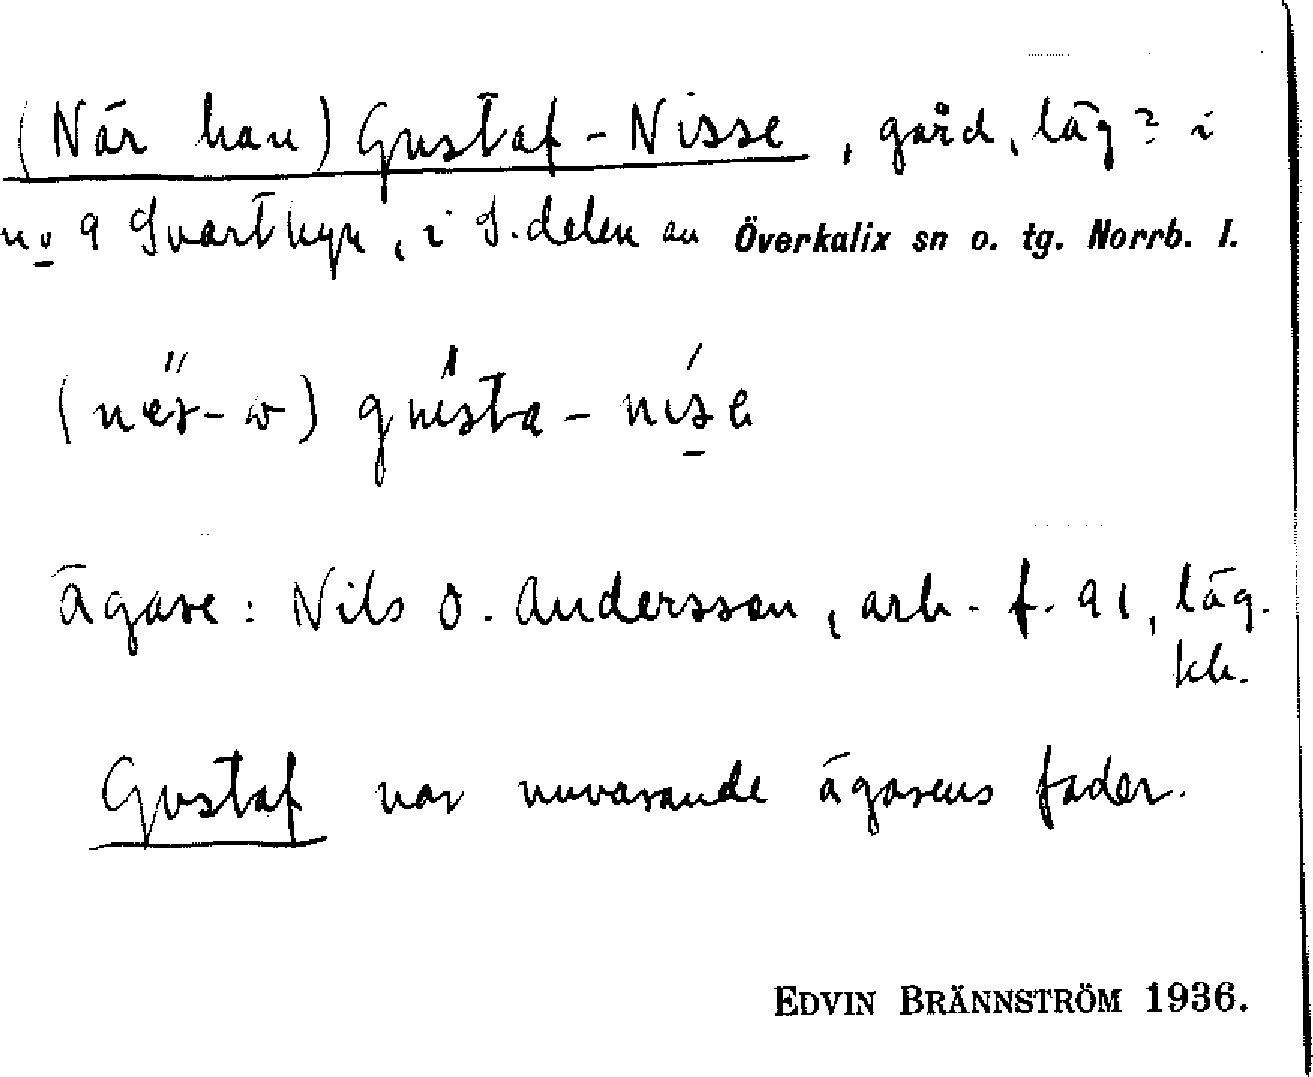 (När han) Gustaf-Nisse, gård, läg? i
no 9 Svartbyn, i S. delen av Överkalix sn o. tg. Norrb. l.
gústa-nísɛ
Ägare: Nils O. Andersson, arb. f. 91, läg.
kb.
Gustaf var nuvarande ägarens fader.
EDVIN BRÄNNSTRÖM 1936.